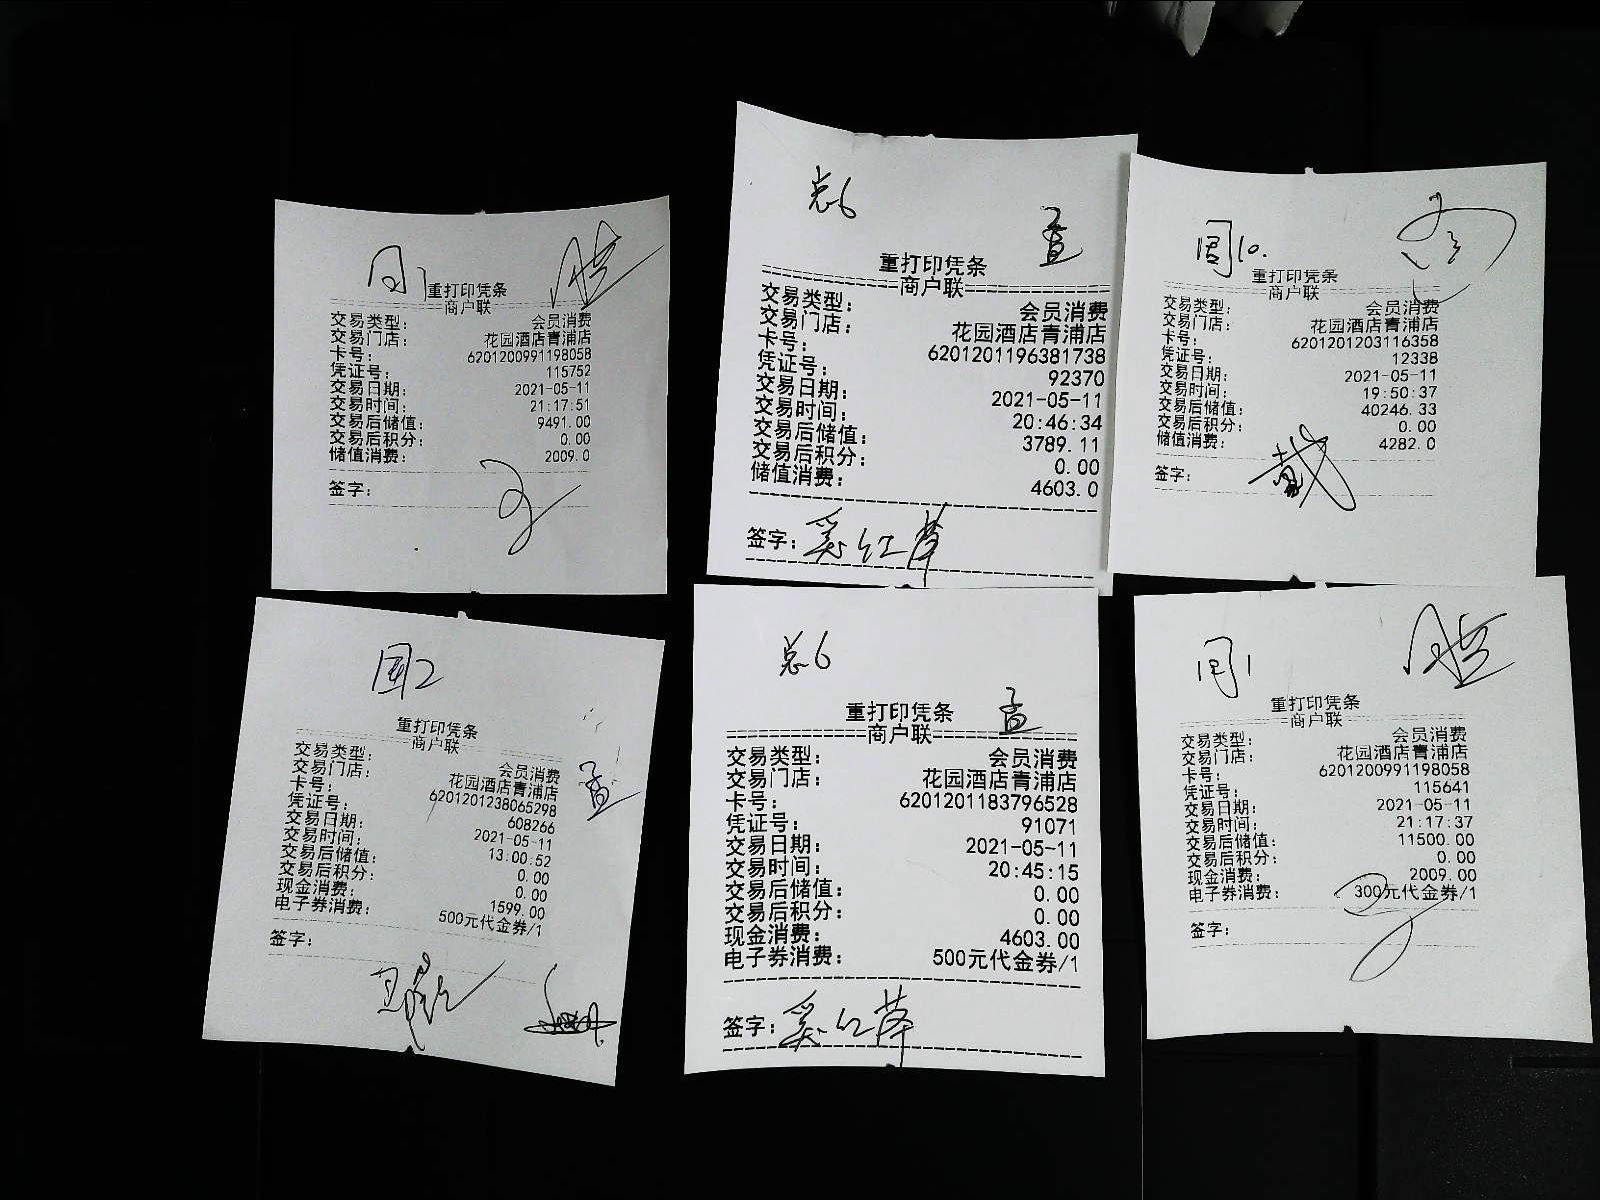 重打印凭条
商户联
交易类型： 会员消费
交易门店： 花园酒店青浦店
卡号： 6201200991198058
凭证号： 115752
交易日期： 2021-05-11
交易时间： 21:17:51
交易后储值： 9491.00
交易后积分： 0.00
储值消费： 2009.0
签字：
总6
孟
重打印凭条
商户联
交易类型： 会员消费
交易门店： 花园酒店青浦店
卡号： 6201201196381738
凭证号： 92370
交易日期： 2021-05-11
交易时间： 20:46:34
交易后储值： 3789.11
交易后积分： 0.00
储值消费： 4603.0
签字： 奚红苹
10.
重打印凭条
商户联
交易类型： 会员消费
交易门店： 花园酒店青浦店
卡号： 6201201203116358
凭证号： 12338
交易日期： 2021-05-11
交易时间： 19:50:37
交易后储值： 40246.33
交易后积分： 0.00
储值消费： 4282.0
签字： 戴
2
重打印凭条
商户联
交易类型： 会员消费
交易门店： 花园酒店青浦店
卡号： 6201201238065298
孟
凭证号： 608266
交易日期： 2021-05-11
交易时间： 13:00:52
交易后储值： 0.00
交易后积分： 0.00
现金消费： 1599.00
电子券消费： 500元代金券/1
签字：
总6
孟
重打印凭条
商户联
交易类型： 会员消费
交易门店： 花园酒店青浦店
卡号： 6201201183796528
凭证号： 91071
交易日期： 2021-05-11
交易时间： 20:45:15
交易后储值： 0.00
交易后积分： 0.00
现金消费： 4603.00
电子券消费： 500元代金券/1
签字： 奚红苹
1
重打印凭条
商户联
交易类型： 会员消费
交易门店： 花园酒店青浦店
卡号： 6201200991198058
凭证号： 115641
交易日期： 2021-05-11
交易时间： 21:17:37
交易后储值： 11500.00
交易后积分： 0.00
现金消费： 2009.00
电子券消费： 300元代金券/1
签字：